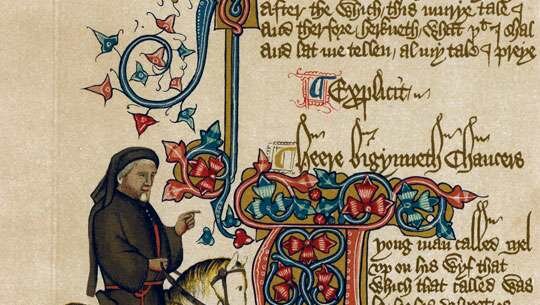 after the which this murye tale I
And therfore herkneth what þt I shal
And lat me tellen al my tale I preye
Explicit
Heere bigynneth Chaucers
yong man called Mel
vp on his wyf that
Which that called was